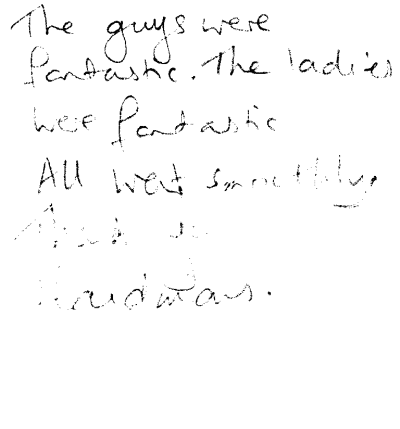 The guys were
fantastic. The ladies
were fantastic
All went smoothly.
Thank